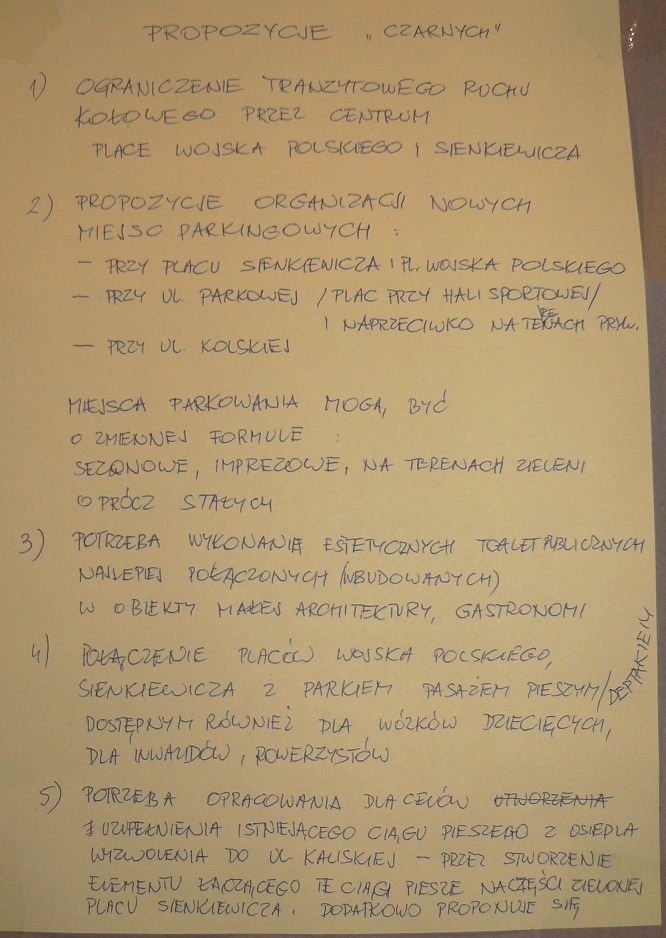 PROPOZYCJE „CZARNYCH"
1) OGRANICZENIE TRANZYTOWEGO RUCHU
KOŁOWEGO PRZEZ CENTRUM
PLACE WOJSKA POLSKIEGO I SIENKIEWICZA
2) PROPOZYCJE ORGANIZACJI NOWYCH
MIEJSC PARKINGOWYCH :
– PRZY PLACU SIENKIEWICZA I PL. WOJSKA POLSKIEGO
– PRZY UL. PARKOWEJ /PLAC PRZY HALI SPORTOWEJ/
I NAPRZECIWKO NA TERENACH PRYW.
– PRZY UL KOLSKIEJ
MIEJSCA PARKOWANIA MOGĄ BYĆ
O ZMIENNEJ FORMULE :
SEZONOWE, IMPREZOWE, NA TERENACH ZIELENI
OPRÓCZ STAŁYCH
3) POTRZEBA WYKONANIA ESTETYCZNYCH TOALET PUBLICZNYCH
NAJLEPIEJ POŁĄCZONYCH (WBUDOWANYCH)
W OBIEKTY MAŁEJ ARCHITEKTURY, GASTRONOMI
4) POŁĄCZENIE PLACÓW WOJSKA POLSKIEGO,
SIENKIEWICZA Z PARKIEM PASAŻEM PIESZYM/DEPTAKIEM
DOSTĘPNYM RÓWNIEŻ DLA WÓZKÓW DZIECIĘCYCH,
DLA INWALIDÓW, ROWERZYSTÓW
5) POTRZEBA OPRACOWANIA DLA CELÓW UTWORZENIA
I UZUPEŁNIENIA ISTNIEJĄCEGO CIĄGU PIESZEGO Z OSIEDLA
WYZWOLENIA DO UL KALISKIEJ – PRZEZ STWORZENIE
ELEMENTU ŁĄCZĄCEGO TE CIĄGI PIESZE NA CZĘŚCI ZIELONEJ
PLACU SIENKIEWICZA. DODATKOWO PROPONUJE SIĘ